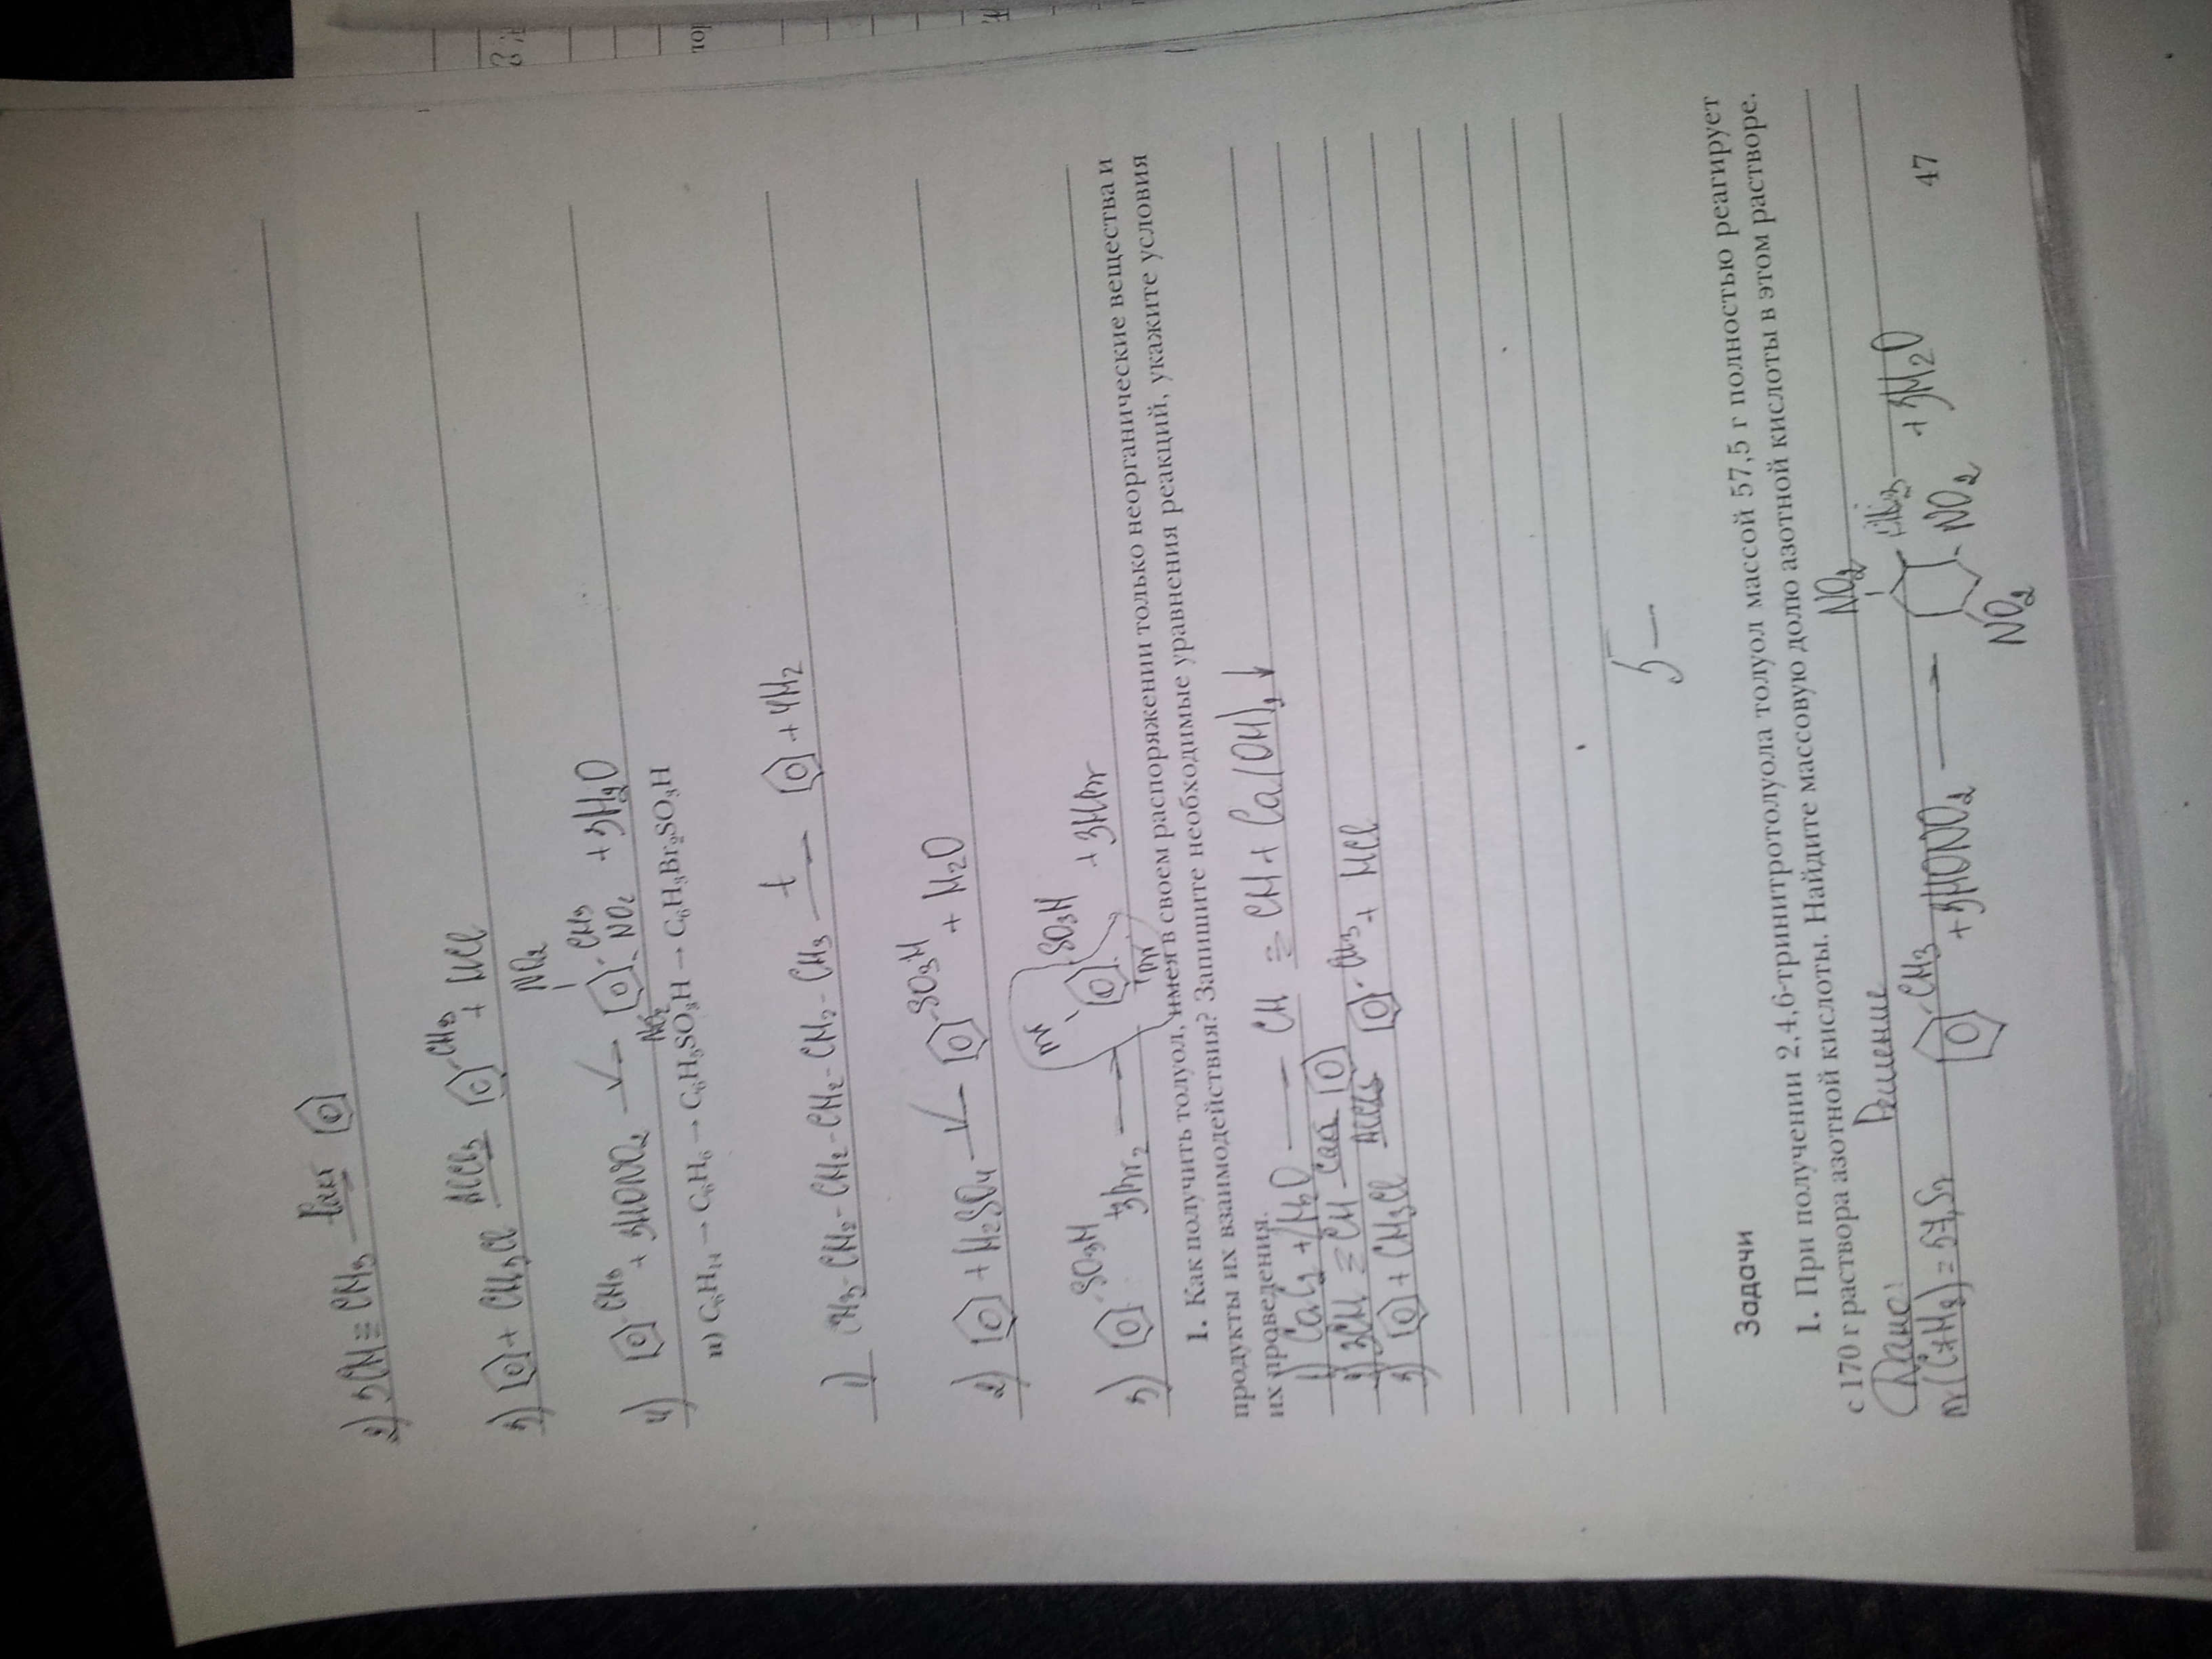 2) 3CH ≡ CH
3) + CH3Cl AlCl3 CH3 + HCl
NO2
4) CH3 + 3HONO2 — CH3 NO2 NO2 + 3H2O
и) C6H14 → C6H6 → C6H5SO3H → C6H3Br2SO3H
1) CH3-CH2-CH2-CH2-CH2-CH3 t + 4H2
2) + H2SO4 — SO3H + H2O
3) SO3H + 3Br2 — Br SO3H Br + 3HBr
1. Как получить толуол, имея в своем распоряжении только неорганические вещества и
продукты их взаимодействия? Запишите необходимые уравнения реакций, укажите условия
их проведения.
1) CaC2 + H2O — CH ≡ CH + Ca(OH)2↓
2) 3CH ≡ CH
3) + CH3Cl AlCl3 CH3 + HCl
5—
Задачи
1. При получении 2,4,6-тринитротолуола толуол массой 57,5 г полностью реагирует
с 170 г раствора азотной кислоты. Найдите массовую долю азотной кислоты в этом растворе.
Дано: Решение
m(C7H8) = 57,5г CH3 + 3HONO2 — NO2 NO2 NO2 + 3H2O
47